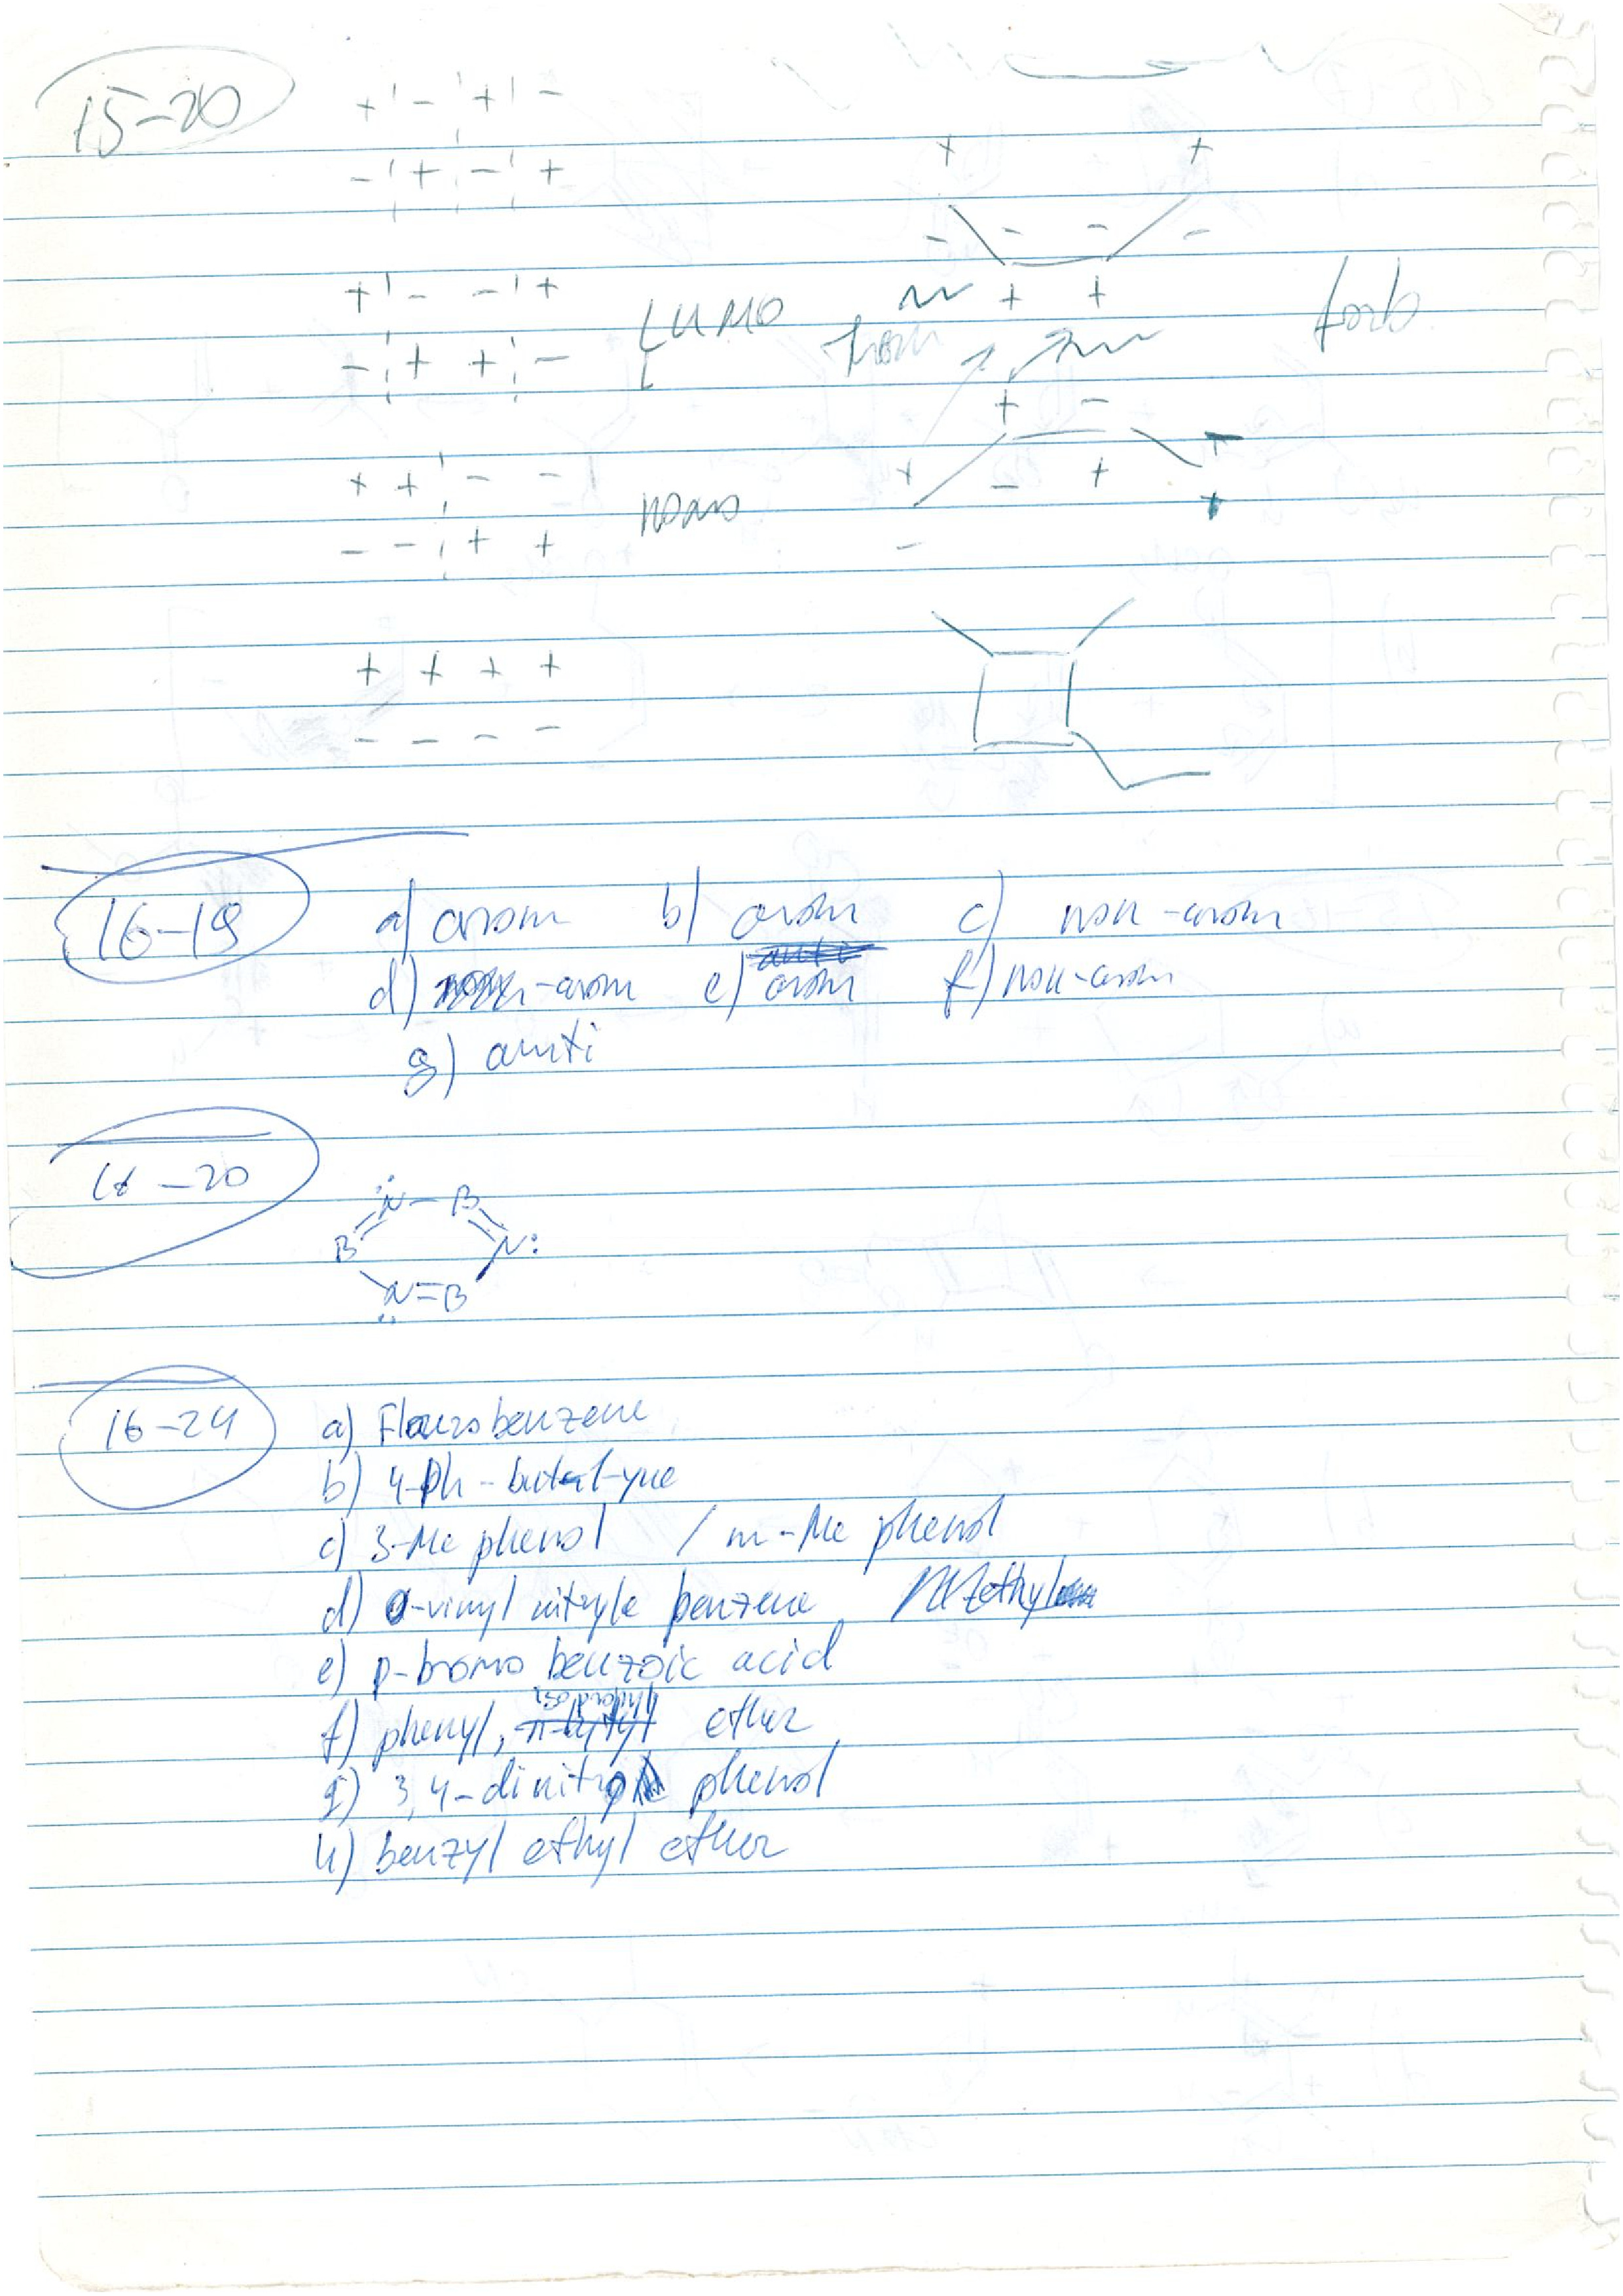 15-20
+ - + -
- + - +
+ - - + LUMO
- + + -
+ + - -
- - + +
+ + + +
- - - -
+ +
- - - -
+ + forb
+ -
+
- +
-
16-19 a) arom b) arom c) non-arom
d) non-arom e) arom f) non-arom
g) anti
16-20
N B
B N:
N=B
16-24 a) Flourobenzene
b) 4-Ph-but-1-yne
c) 3-Me phenol / m-Me phenol
d) o-vinyl nitryle benzene
e) p-bromo benzoic acid
f) phenyl, ether
g) 3,4-dinitro phenol
h) benzyl ethyl ether